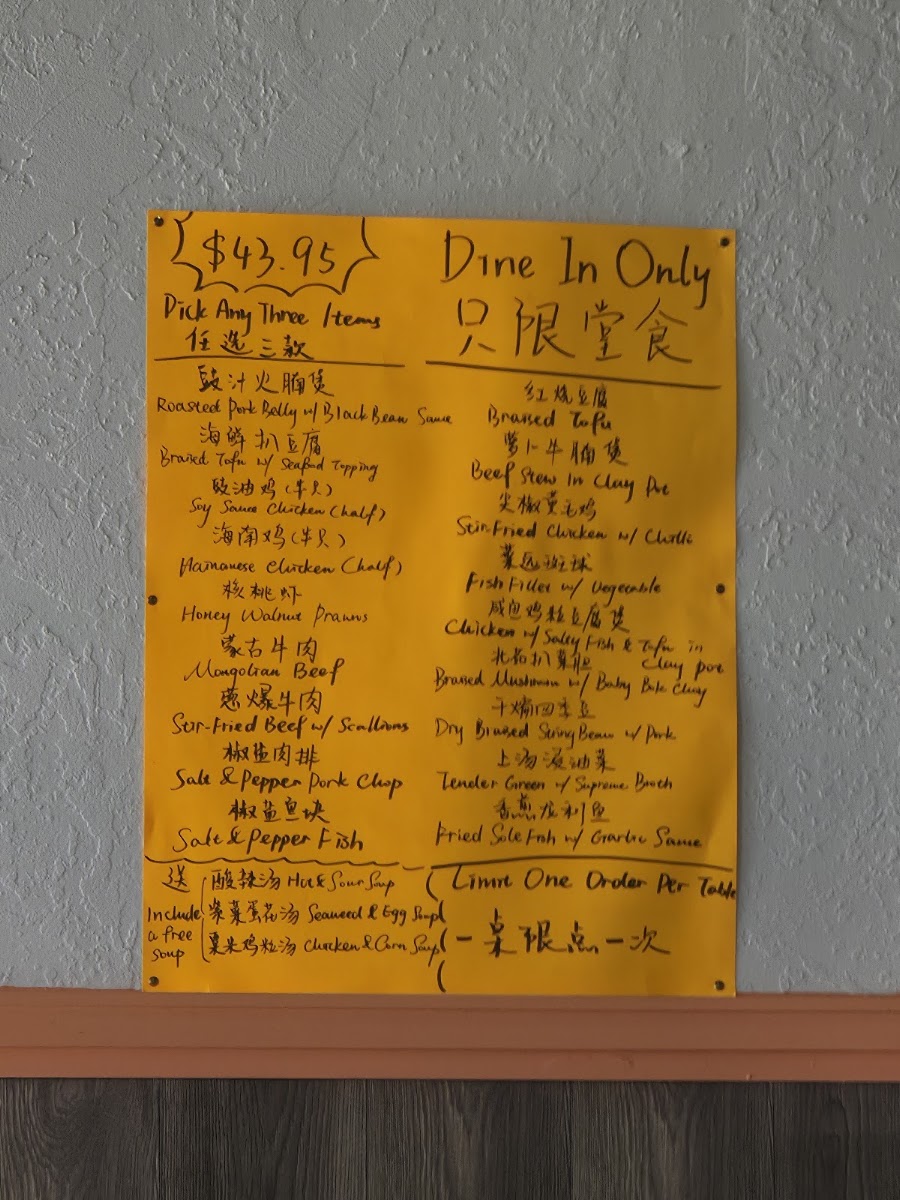 $43.95
Pick Any Three Items
任选三款
豉汁火腩煲
Roasted Pork Belly w/ Black Bean Sauce
海鲜扒豆腐
Braised Tofu w/ Seafood Topping
豉油鸡(半只)
Soy Sauce Chicken (half)
海南鸡(半只)
Hainanese Chicken (half)
核桃虾
Honey Walnut Prawns
蒙古牛肉
Mongolian Beef
葱爆牛肉
Stir-Fried Beef w/ Scallions
椒盐肉排
Salt & Pepper Pork Chop
椒盐鱼块
Salt & Pepper Fish
送
Include a free soup
酸辣汤 Hot & Sour Soup
紫菜蛋花汤 Seaweed & Egg Soup
粟米鸡粒汤 Chicken & Corn Soup
Dine In Only
只限堂食
红烧豆腐
Braised Tofu
萝卜牛腩煲
Beef Stew in Clay Pot
尖椒
Stir-Fried Chicken w/ Chilli
菜远斑球
Fish Fillet w/ Vegetable
咸鱼鸡粒豆腐煲
Chicken w/ Salty Fish & Tofu in Clay pot
北菇扒菜胆
Braised Mushroom w/ Baby Bok Choy
干煸四季豆
Dry Braised String Bean w/ Pork
上汤浸油菜
Tender Green w/ Supreme Broth
香煎龙利鱼
Fried Sole Fish w/ Garlic Sauce
Limit One Order Per Table
一桌限点一次